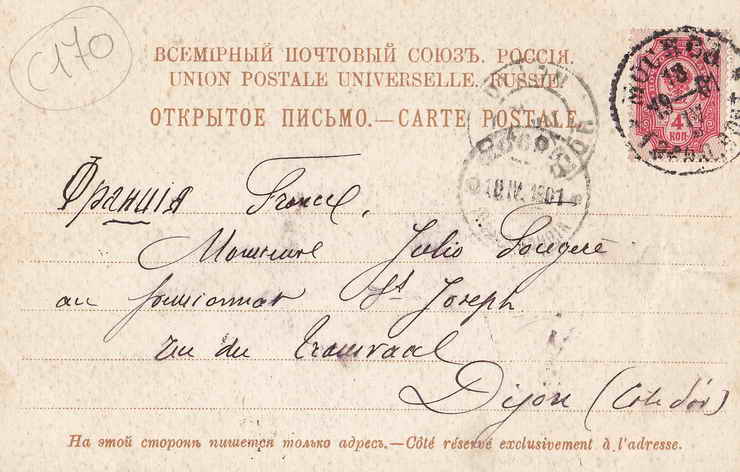 C170
ВСЕМІРНЫЙ ПОЧТОВЫЙ СОЮЗЪ. РОССІЯ.
UNION POSTALE UNIVERSELLE. RUSSIE
ОТКРЫТОЕ ПИСЬМО.—CARTE POSTALE
4
КОП
МОСКВА
18 IV 1901
Франція France,
Julio
au St Joseph
rue du
Dijon (Côte d'or)
На этой сторонѣ пишется только адресъ.—Côté réservé exclusivement à l'adresse.